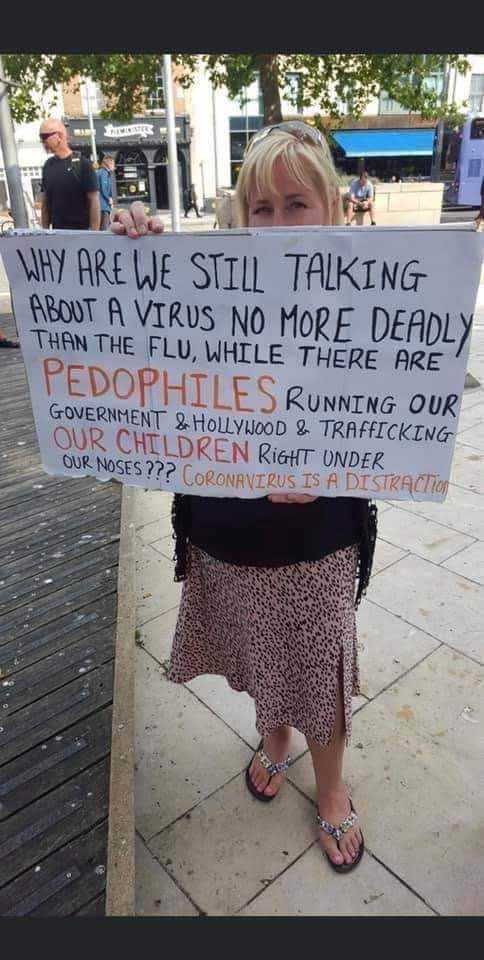 WHY ARE WE STILL TALKING
ABOUT A VIRUS NO MORE DEADLY
THAN THE FLU, WHILE THERE ARE
PEDOPHILES RUNNING OUR
GOVERNMENT & HOLLYWOOD & TRAFFICKING
OUR CHILDREN RIGHT UNDER
OUR NOSES??? CORONAVIRUS IS A DISTRACTION